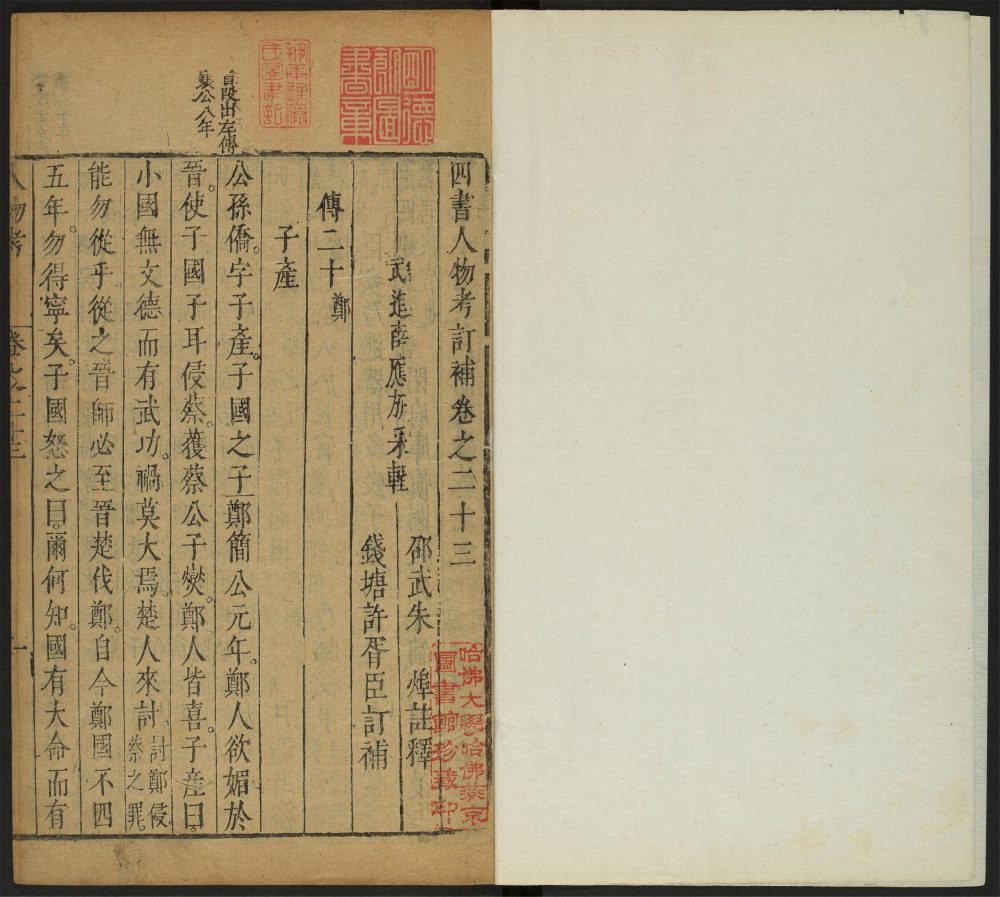 四書人物考訂補卷之二十三
武進薛應旂采輯
邵武朱焯註釋
錢塘許胥臣訂補
傳二十鄭
子產
公孫僑。字子產。子國之子。鄭簡公元年。鄭人欲媚於
晉。使子國子耳侵蔡。獲蔡公子燮。鄭人皆喜。子產曰。
小國無文德而有武功。禍莫大焉。楚人來討。討鄭侵蔡之罪。
能勿從乎。從之晉師必至。晉楚伐鄭。自今鄭國不四
五年。勿得寧矣。子國怒之曰。爾何知。國有大命而有
首段出左傳
襄公八年
人物考
卷之二十三
一
哈佛大學哈佛燕京
圖書館珍藏印